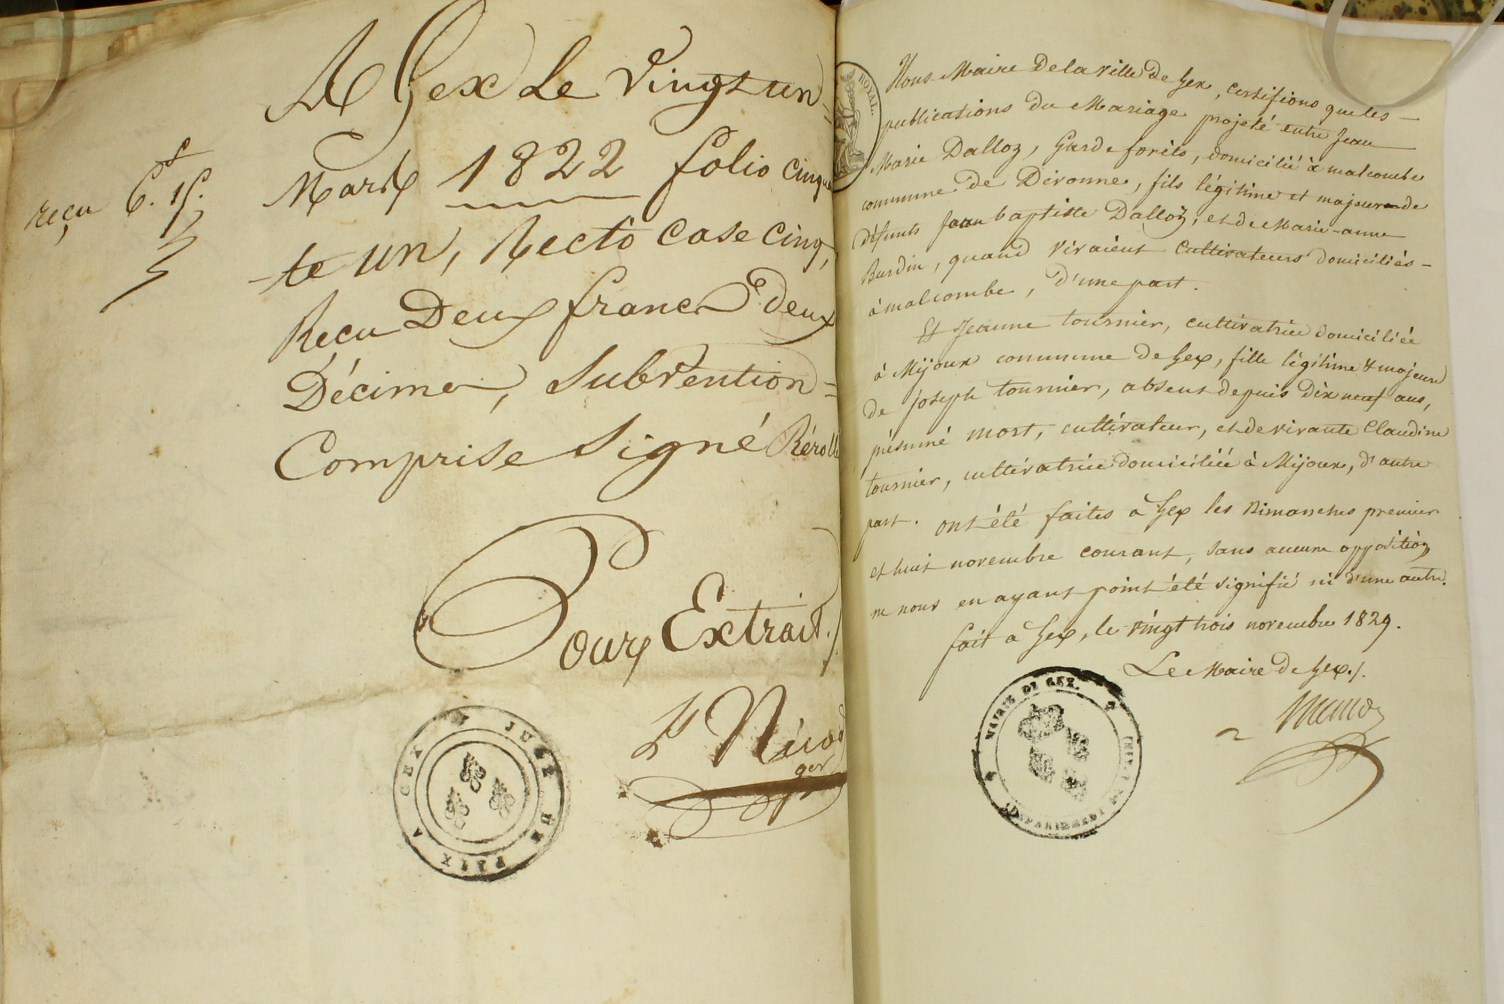 A Gex Le Vingt un
Mars 1822 folio cinquan
te un, Recto Case cinq,
Reçu Deux francs deux
Décimes, Subvention
Comprise Signé
reçu 6.f 15.
Pour Extrait./.
Nicod
ger
JUGE DE PAIX A GEX
ROYAL.
Nous Maire De la ville De Gex, certifions que les
publications du Mariage projeté entre Jean
Marie Dalloz, Garde forêts, domicilié à malcombe
commune de Divonne, fils légitime et majeur de
défunts Jean baptiste Dalloz, et de Marie-anne
Burdin, quand vivaient Cultivateurs domiciliés
à malcombe, D'une part.
Et Jeanne tournier, cultivatrice domiciliée
à Mijoux commune de Gex, fille légitime & majeure
de Joseph tournier, absent depuis Dix neuf ans,
présumé mort, cultivateur, et de vivante Claudine
tournier, cultivatrice domiciliée à Mijoux, d'autre
part. ont été faites à Gex les Dimanches premier
et huit novembre courant, sans aucune opposition,
ne nous en ayant point été signifié ni d'une autre.
fait à Gex, le vingt trois novembre 1829.
Le Maire De Gex./.
MAIRIE DE GEX.
DEPARTEMENT DE L'AIN